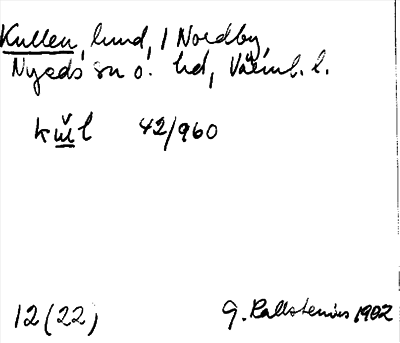 Kullen, lund, i Nordby,
Nyeds sn o. hd, Värml. l.
kŭl 42/960
12(22) G. Kallstenius 1902